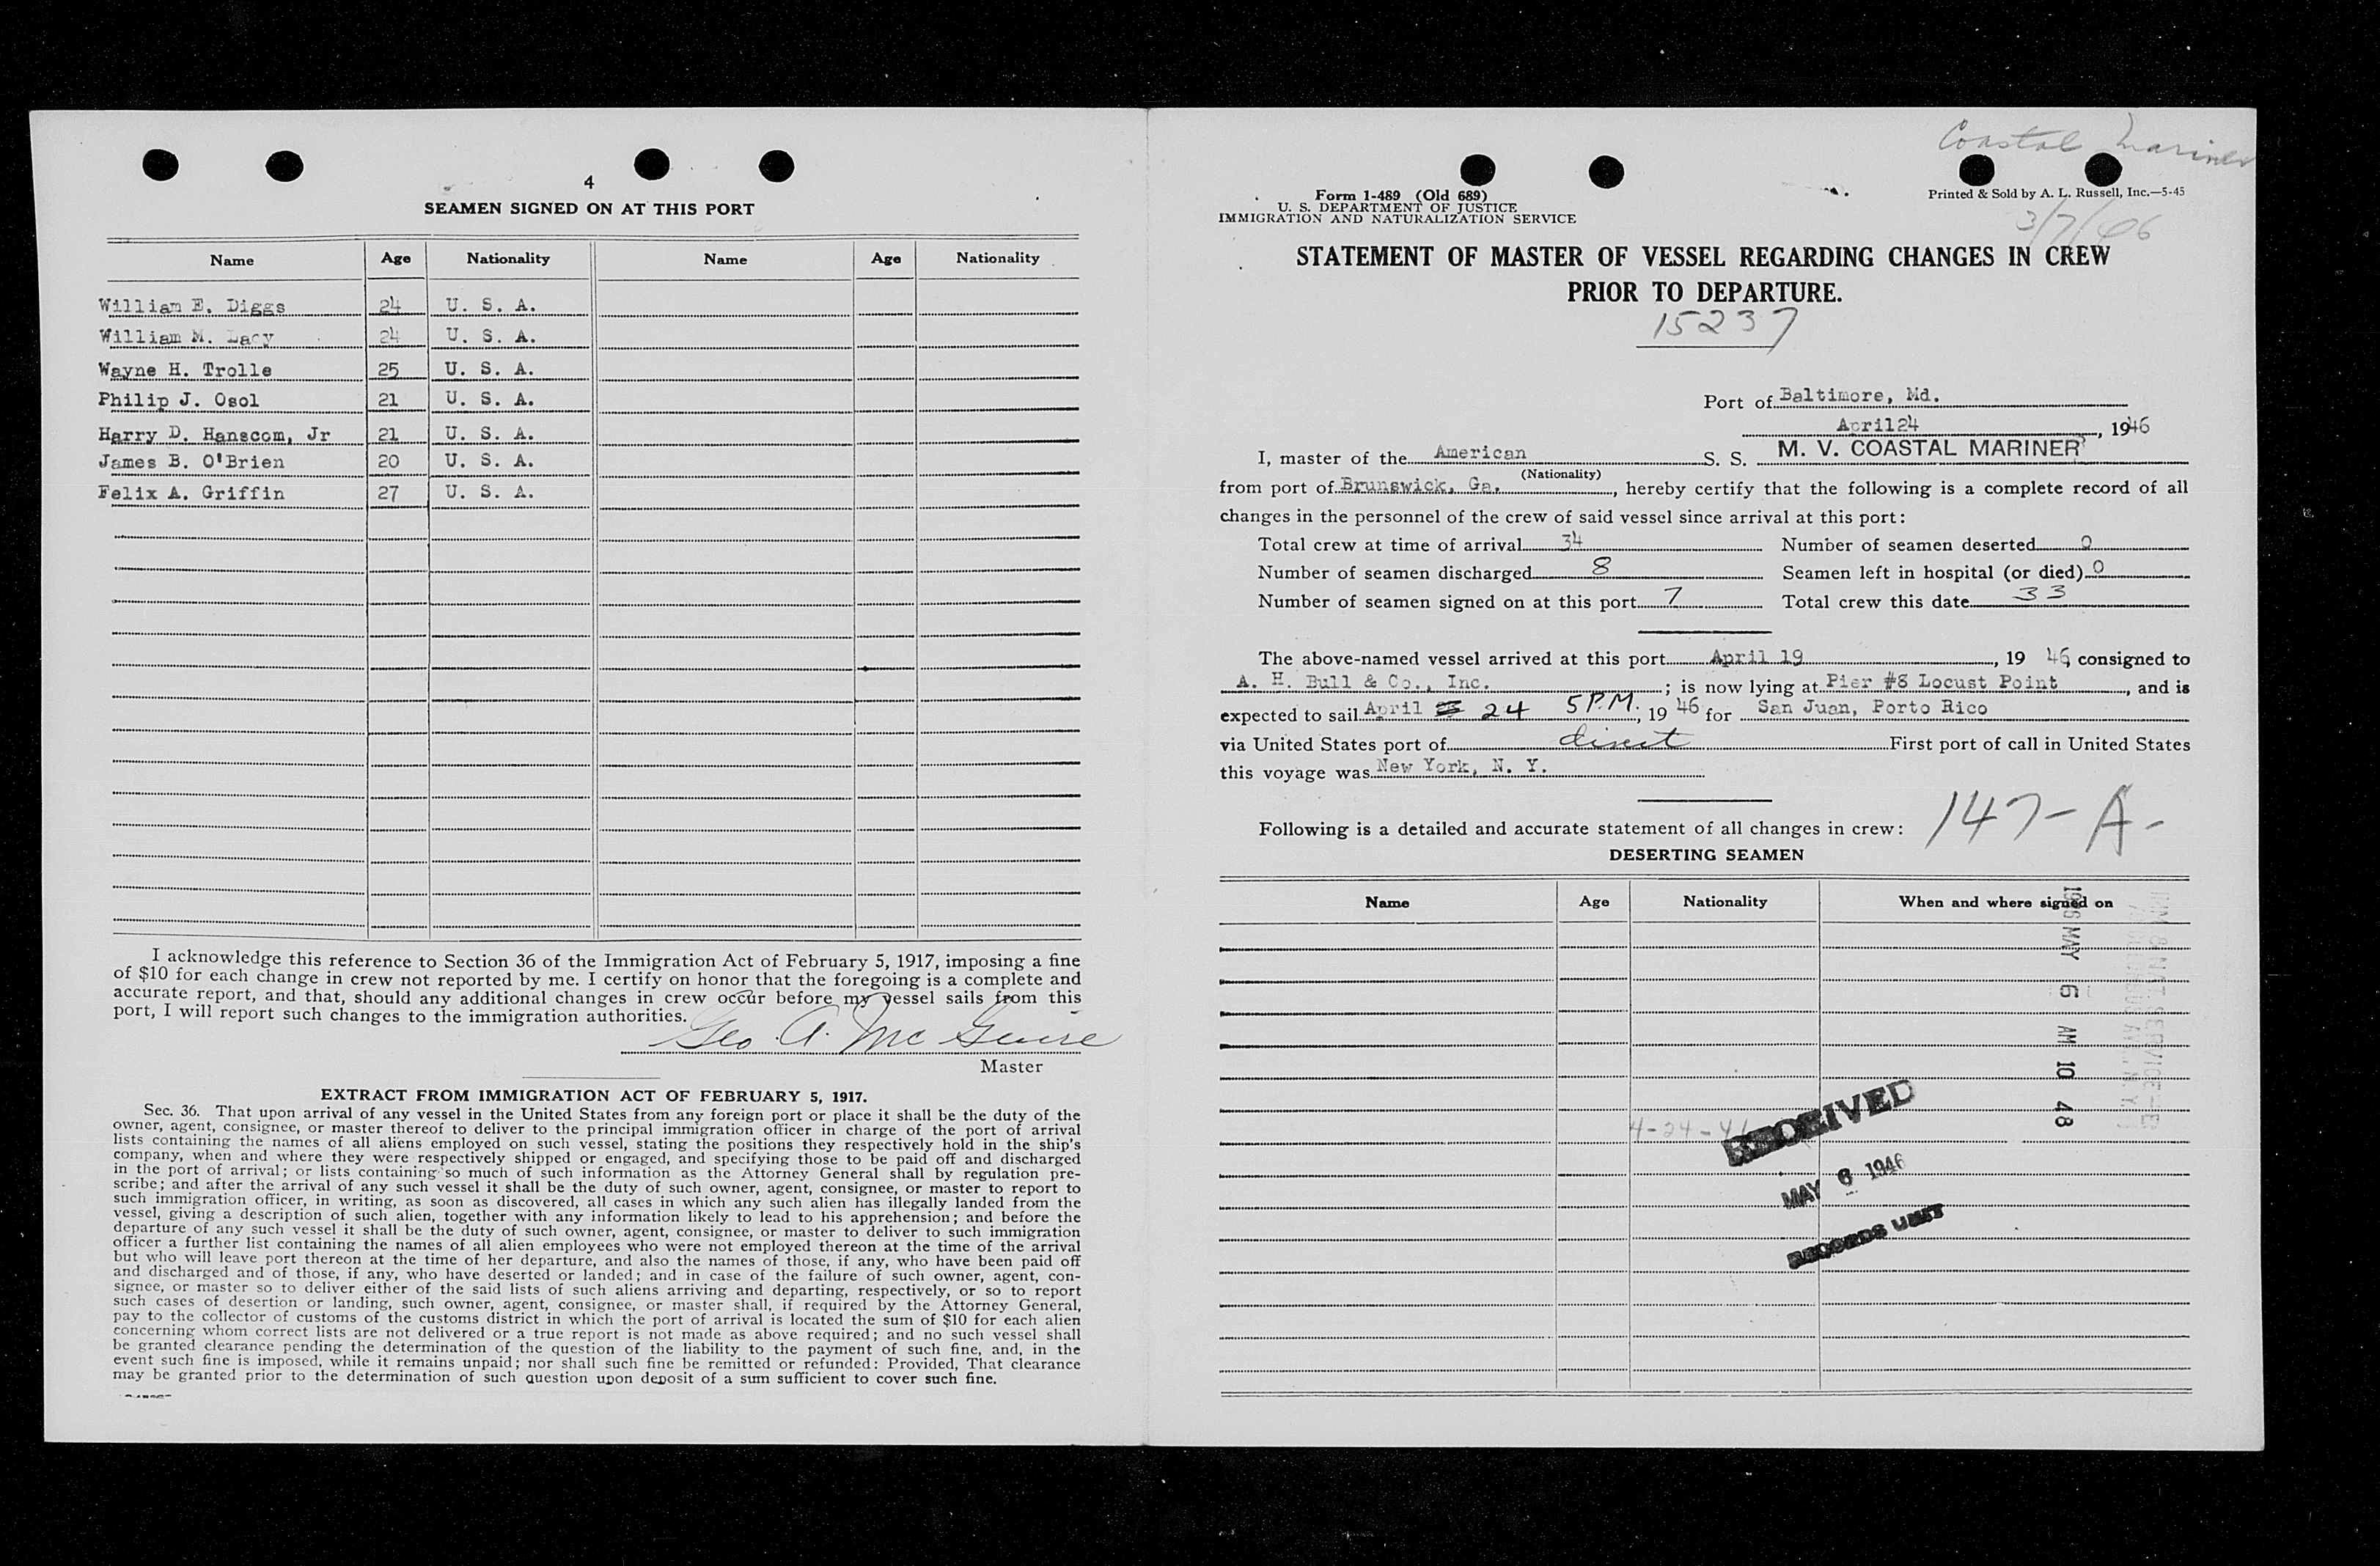 4
SEAMEN SIGNED ON AT THIS PORT
Name Age Nationality Name Age Nationality
William E. Diggs 24 U. S. A.
William M. Lacy 24 U. S. A.
Wayne H. Trolle 25 U. S. A.
Philip J. Osol 21 U. S. A.
Harry D. Hanscom, Jr 21 U. S. A.
James B. O'Brien 20 U. S. A.
Felix A. Griffin 27 U. S. A.
I acknowledge this reference to Section 36 of the Immigration Act of February 5, 1917, imposing a fine
of $10 for each change in crew not reported by me. I certify on honor that the foregoing is a complete and
accurate report, and that, should any additional changes in crew occur before my vessel sails from this
port, I will report such changes to the immigration authorities.
Geo. A. McGuire
Master
EXTRACT FROM IMMIGRATION ACT OF FEBRUARY 5, 1917.
Sec. 36. That upon arrival of any vessel in the United States from any foreign port or place it shall be the duty of the
owner, agent, consignee, or master thereof to deliver to the principal immigration officer in charge of the port of arrival
lists containing the names of all aliens employed on such vessel, stating the positions they respectively hold in the ship's
company, when and where they were respectively shipped or engaged, and specifying those to be paid off and discharged
in the port of arrival; or lists containing so much of such information as the Attorney General shall by regulation pre-
scribe; and after the arrival of any such vessel it shall be the duty of such owner, agent, consignee, or master to report to
such immigration officer, in writing, as soon as discovered, all cases in which any such alien has illegally landed from the
vessel, giving a description of such alien, together with any information likely to lead to his apprehension; and before the
departure of any such vessel it shall be the duty of such owner, agent, consignee, or master to deliver to such immigration
officer a further list containing the names of all alien employees who were not employed thereon at the time of the arrival
but who will leave port thereon at the time of her departure, and also the names of those, if any, who have been paid off
and discharged and of those, if any, who have deserted or landed; and in case of the failure of such owner, agent, con-
signee, or master so to deliver either of the said lists of such aliens arriving and departing, respectively, or so to report
such cases of desertion or landing, such owner, agent, consignee, or master shall, if required by the Attorney General,
pay to the collector of customs of the customs district in which the port of arrival is located the sum of $10 for each alien
concerning whom correct lists are not delivered or a true report is not made as above required; and no such vessel shall
be granted clearance pending the determination of the question of the liability to the payment of such fine, and, in the
event such fine is imposed, while it remains unpaid; nor shall such fine be remitted or refunded: Provided, That clearance
may be granted prior to the determination of such question upon deposit of a sum sufficient to cover such fine.
Coastal Mariner
Form 1-489 (Old 689)
U. S. DEPARTMENT OF JUSTICE
IMMIGRATION AND NATURALIZATION SERVICE
Printed & Sold by A. L. Russell, Inc.—5-45
3/7/46
STATEMENT OF MASTER OF VESSEL REGARDING CHANGES IN CREW
PRIOR TO DEPARTURE.
15237
Port of Baltimore, Md.
April 24, 1946
I, master of the American S. S. M. V. COASTAL MARINER
(Nationality)
from port of Brunswick, Ga., hereby certify that the following is a complete record of all
changes in the personnel of the crew of said vessel since arrival at this port:
Total crew at time of arrival 34 Number of seamen deserted 0
Number of seamen discharged 8 Seamen left in hospital (or died) 0
Number of seamen signed on at this port 7 Total crew this date 33
The above-named vessel arrived at this port April 19, 19 46, consigned to
A. H. Bull & Co., Inc.; is now lying at Pier #8 Locust Point, and is
expected to sail April 24 5 P.M., 19 46 for San Juan, Porto Rico
via United States port of direct First port of call in United States
this voyage was New York, N. Y.
Following is a detailed and accurate statement of all changes in crew:
147-A-
DESERTING SEAMEN
Name Age Nationality When and where signed on
1946 MAY 6 AM 10 48
RECEIVED
MAY 6 1946
RECORDS UNIT